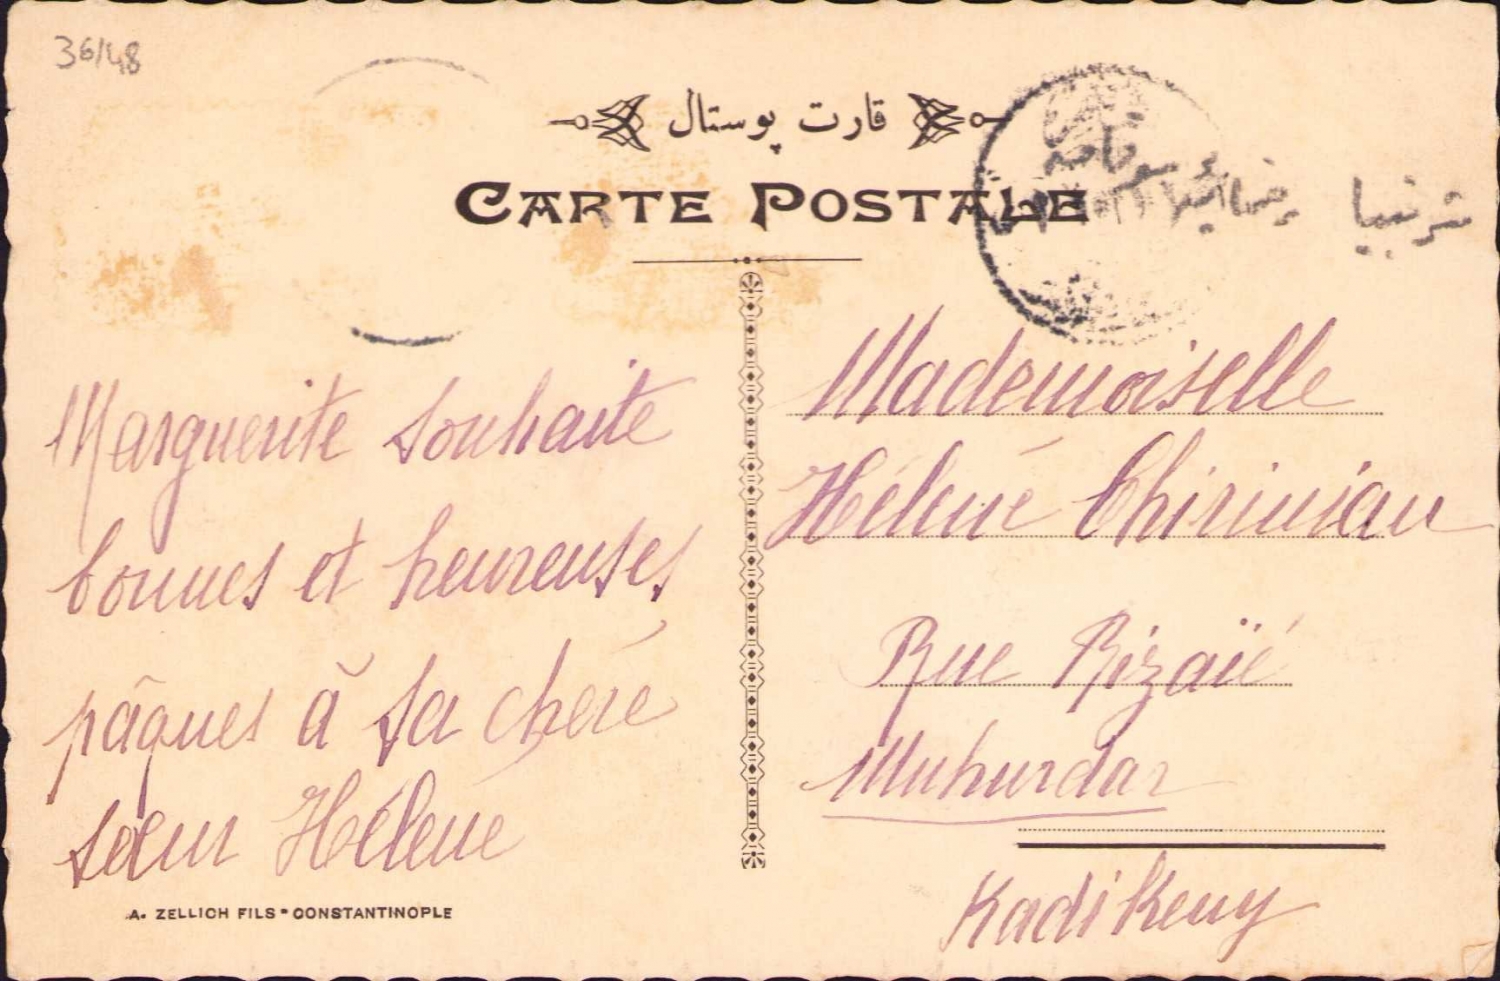 36/48
قارت پوستال
CARTE POSTALE
Marguerite souhaite
bonnes et heureuses
pâques à sa chère
sœur Hélène
A. ZELLICH FILS - CONSTANTINOPLE
Mademoiselle
Hélène Chirinian
Rue Rizaïé
Muhurdar
Kadi Keuy